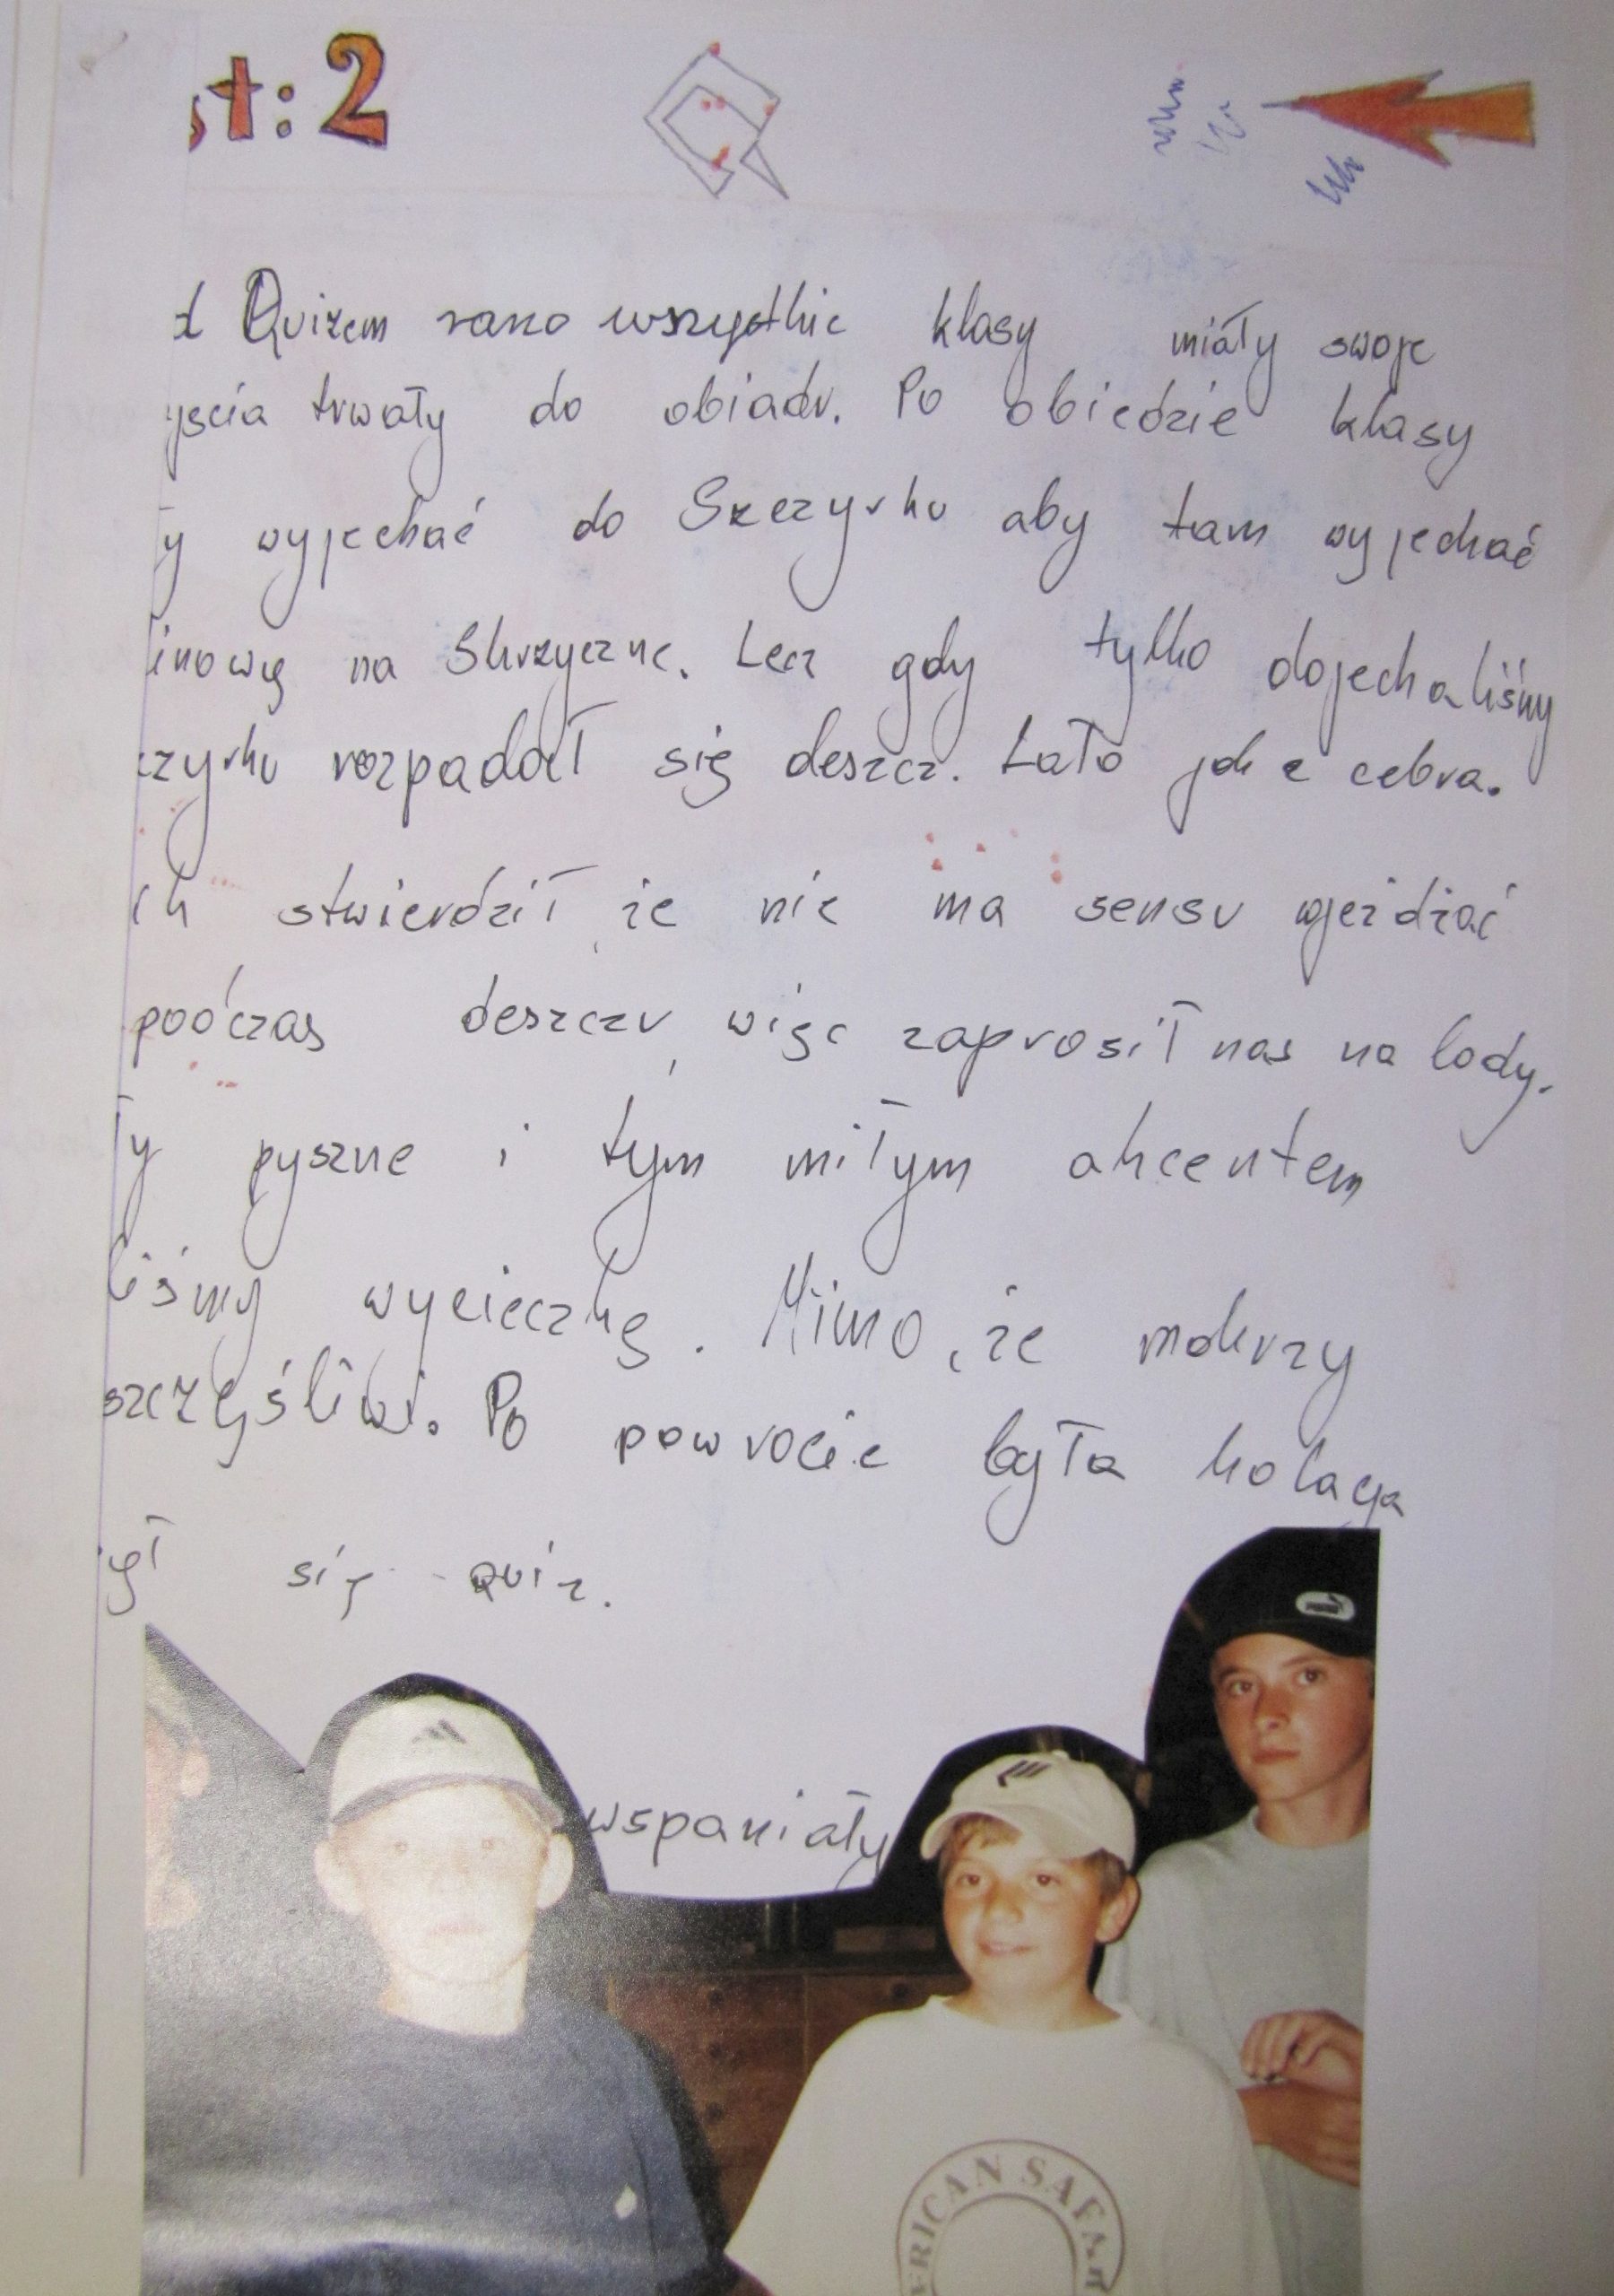 st: 2
d Quizem rano wszystkie klasy miały swoje
yscia trwały do obiadu. Po obiedzie klasy
y wyjechać do Szczyrku aby tam wyjechać
linową na Skrzyczne. Lecz gdy tylko dojechaliśmy
czyrku rozpadał się deszcz. Lało jak z cebra.
ch stwierdził, że nie ma sensu wjeżdżać
podczas deszczu, więc zaprosił nas na lody.
ły pyszne i tym miłym akcentem
liśmy wycieczkę. Mimo, że mokrzy
szczęśliwi. Po powrocie była kolacja
ył się quiz.
wspaniały
RICAN SAFAR